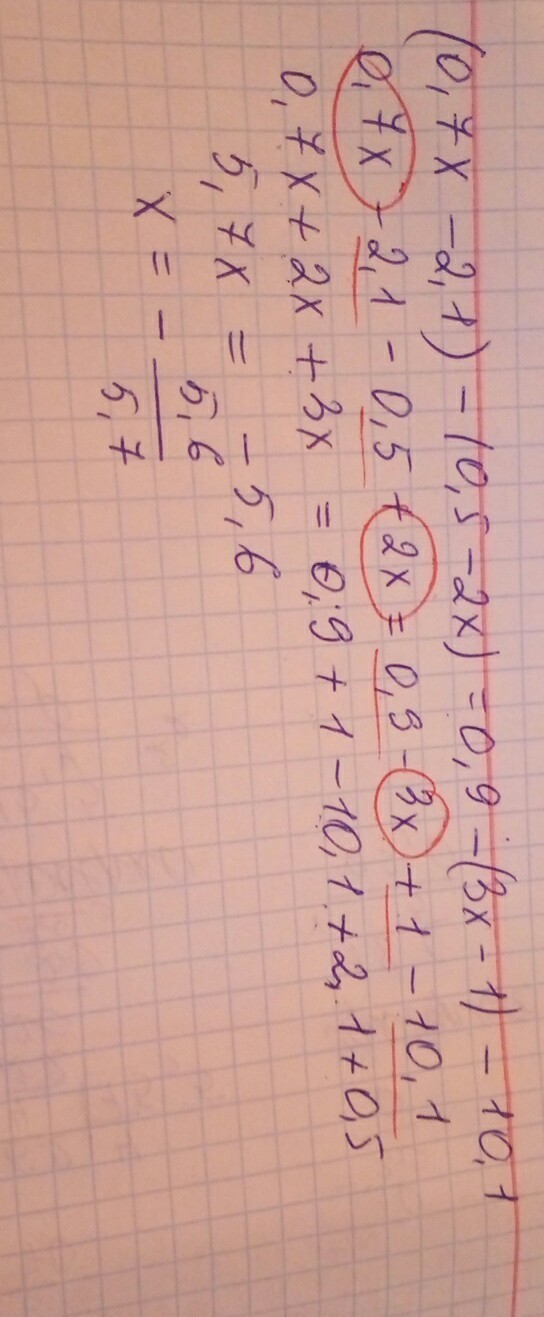 (0,7x - 2,1) - (0,5 - 2x) = 0,9 - (3x - 1) - 10,1
0,7x - 2,1 - 0,5 + 2x = 0,9 - 3x + 1 - 10,1
0,7x + 2x + 3x = 0,9 + 1 - 10,1 + 2,1 + 0,5
5,7x = - 5,6
x = - 5,6/5,7